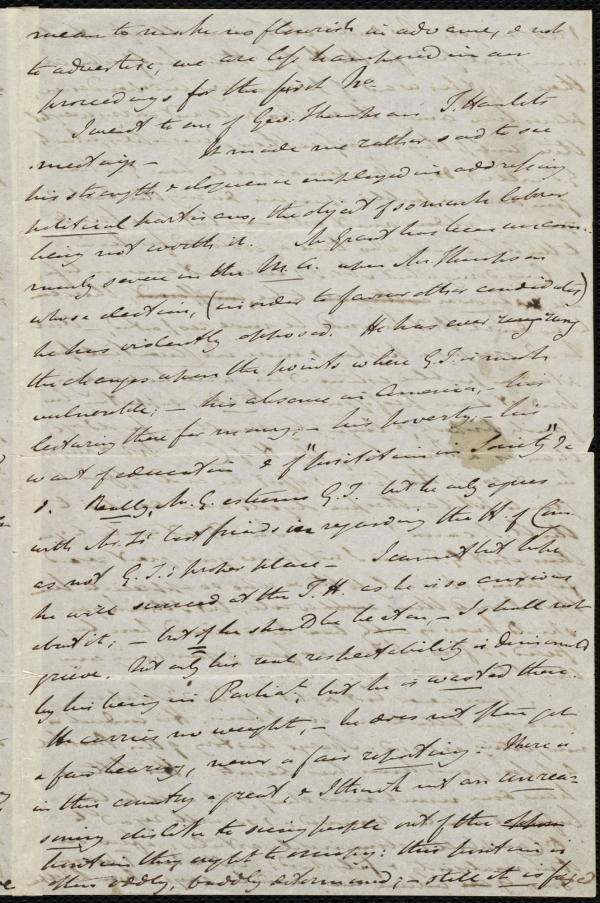 mean to make no flourish in advance, & not
to advertise, we are less hampered in our
proceedings for the first No.
I went to one of Geo. Thompson's T. Hamlets
meetings — It made me rather sad to see
his strength & eloquence employed in addressing
political partisans, the object of so much labour
being not worth it. Mr Grant has been uncom-
monly severe in the M. A. upon Mr Thompson
whose election, (in order to favour other candidates)
he has violently opposed. He has ever rung
the changes upon the points where G. T. is most
vulnerable; — his absence in America, — his
lecturing there for money, — his poverty, — his
want of education & of "position in Society" &c
&. Really, Mr. G. esteems G. T. but he only agrees
with Mr T's best friends in regarding the H. of Com.
as not G. T.'s proper place — I cannot but hope
he will succeed at the T. H. as he is so anxious
about it; — but if he should be beaten, — I shall not
grieve. Not only his real respectability is diminished
by his being in Parliat, but he is wasted there.
He carries no weight, — he does not often get
a fair hearing, never a fair reporting. There is
in this country a great, & I think not an unrea-
soning dislike to seeing people out of the
position they ought to occupy: this position is
often oddly, badly determined; — still it is